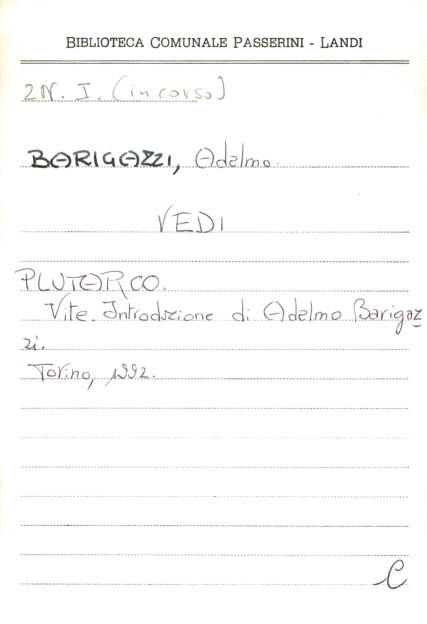 BIBLIOTECA COMUNALE PASSERINI - LANDI
2N. I. (in corso)
BARIGAZZI, Adelmo.
VEDI
PLUTARCO.
Vite. Introduzione di Adelmo Barigaz
zi.
Torino, 1992.
C